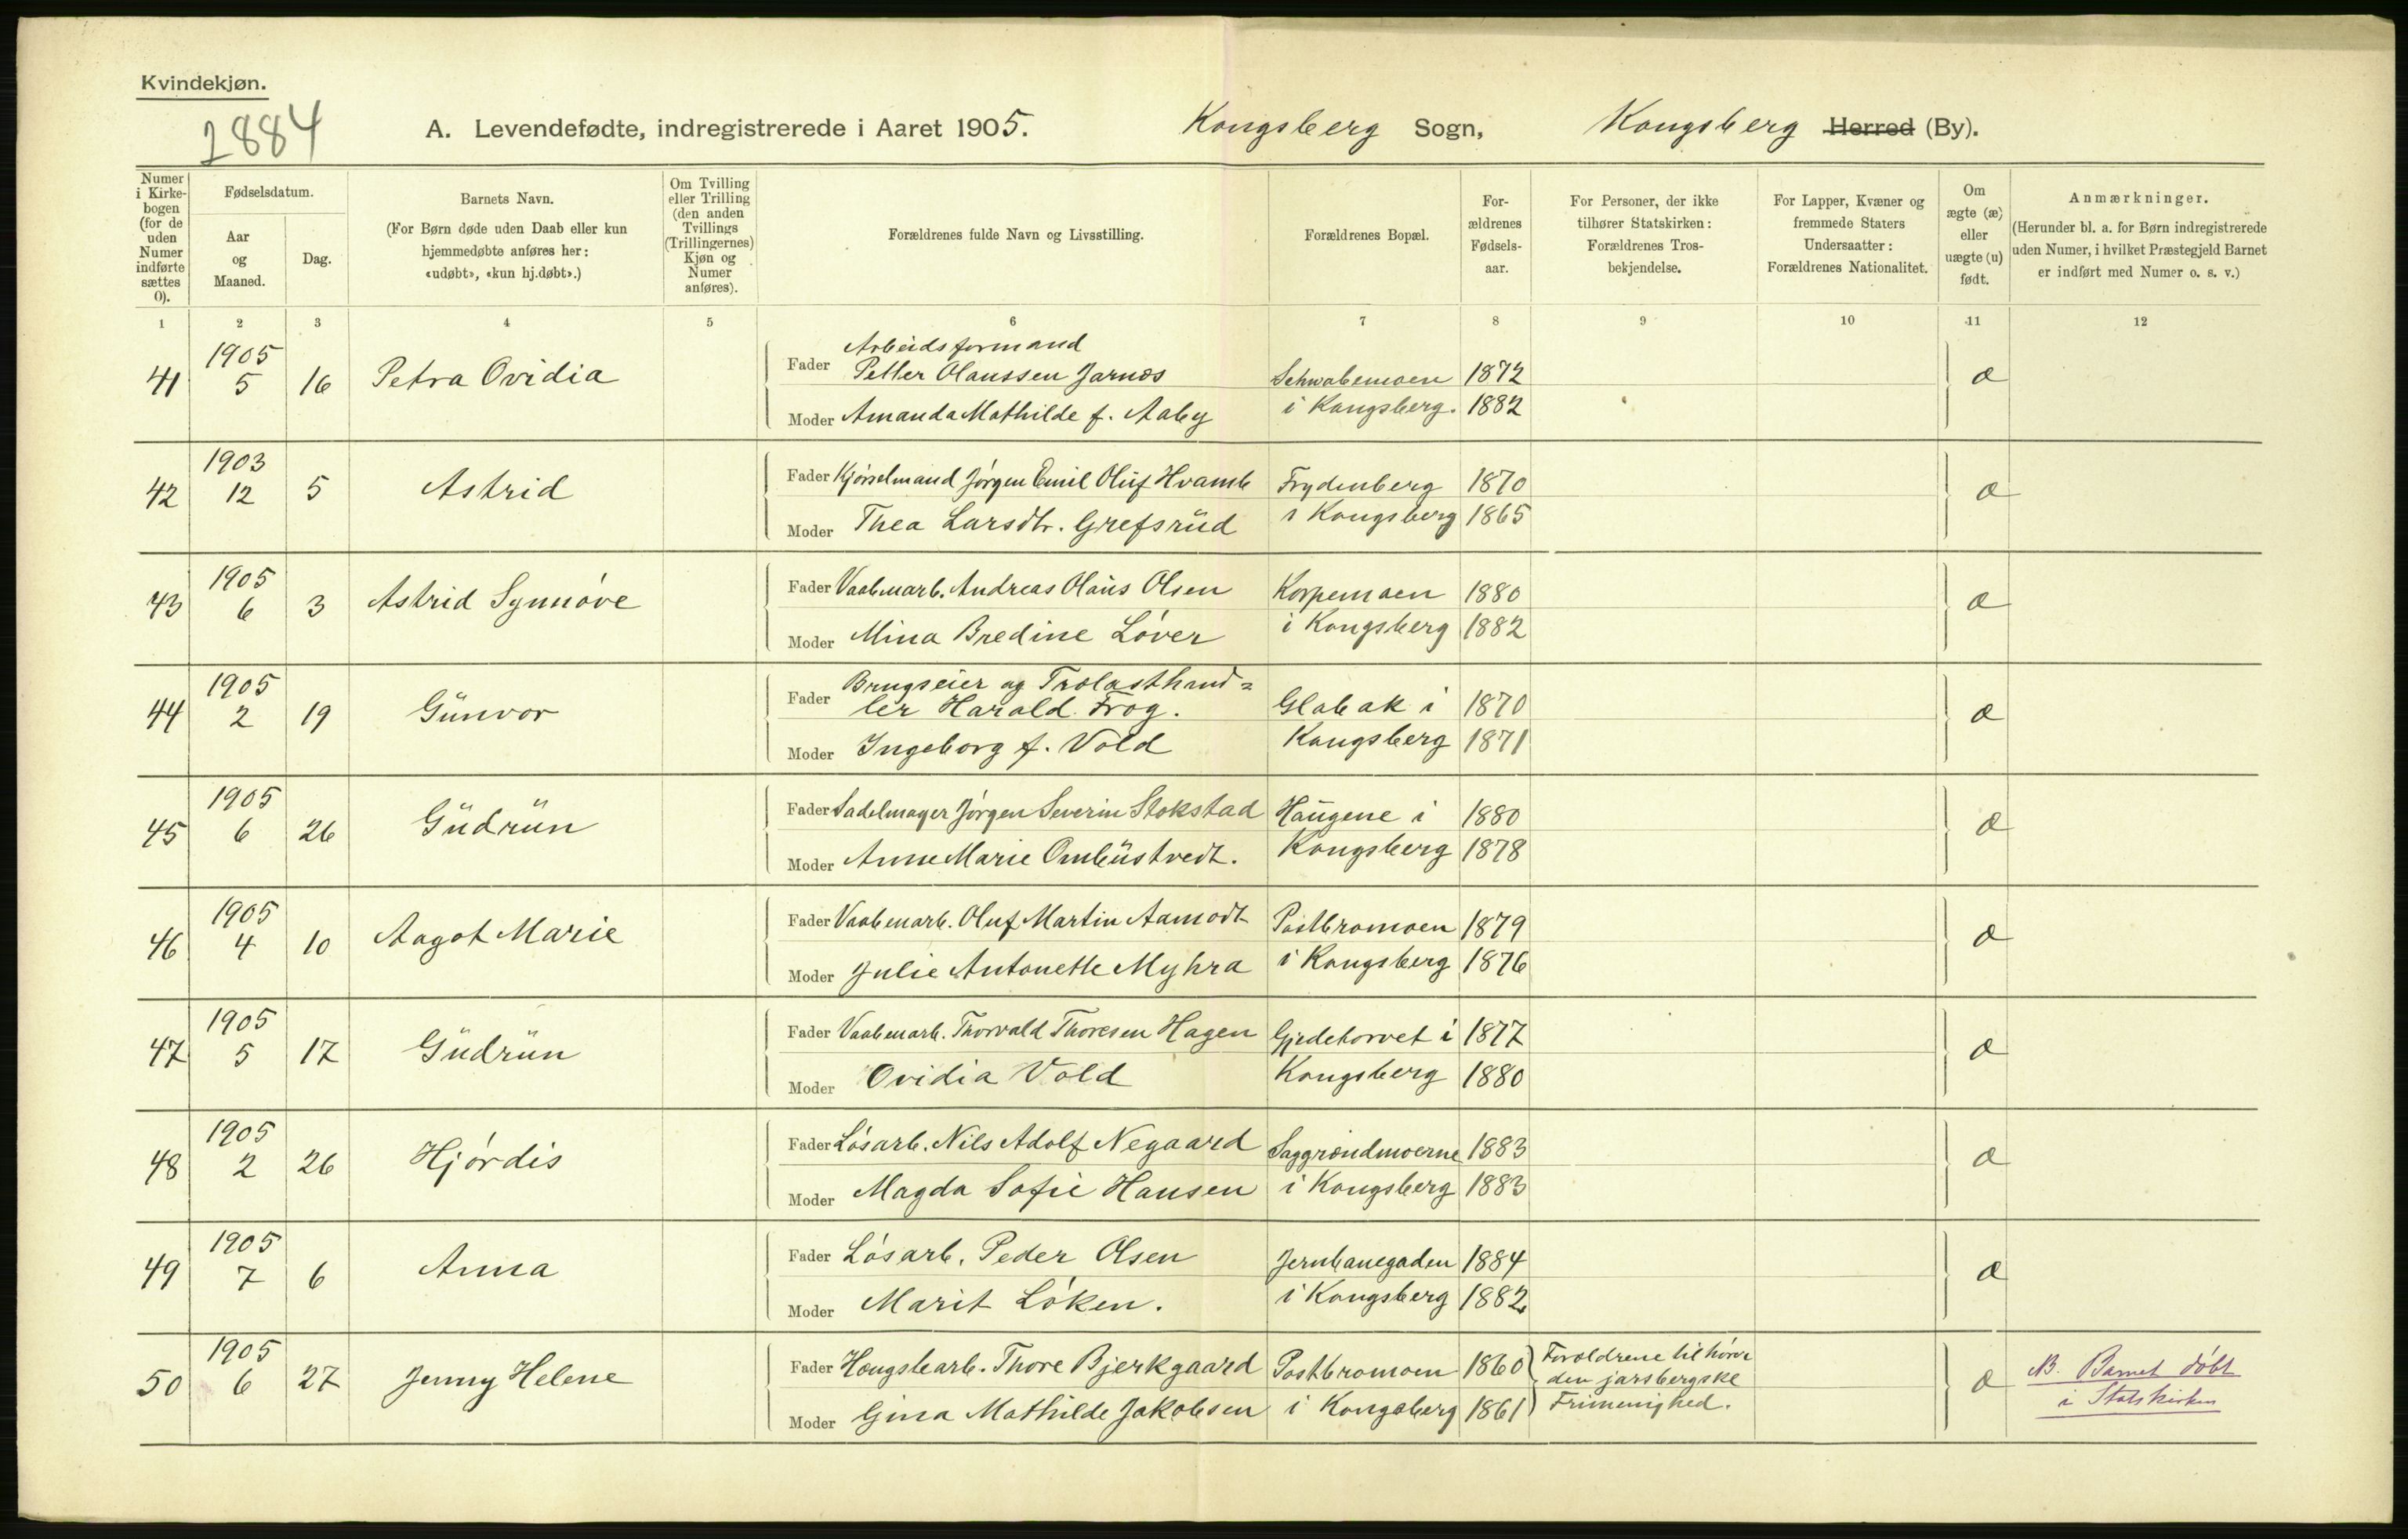 Kvindekjøn.
2884
A. Levendefødte, indregistrerede i Aaret 1905. Kongsberg Sogn, Kongsberg Herred (By).
Numer i Kirkebogen (for de uden Numer indførte sættes 0).
Fødselsdatum.
Aar og Maaned.
Dag.
Barnets Navn.
(For Børn døde uden Daab eller kun hjemmedøbte anføres her: «udøbt», «kun hj.døbt».)
Om Tvilling eller Trilling (den anden Tvillings (Trillingernes) Kjøn og Numer anføres).
Forældrenes fulde Navn og Livsstilling.
Forældrenes Bopæl.
Forældrenes Fødselsaar.
For Personer, der ikke tilhører Statskirken: Forældrenes Trosbekjendelse.
For Lapper, Kvæner og fremmede Staters Undersaatter: Forældrenes Nationalitet.
Om ægte (æ) eller uægte (u) født.
Anmærkninger.
(Herunder bl. a. for Børn indregistrerede uden Numer, i hvilket Præstegjeld Barnet er indført med Numer o. s. v.)
1 2 3 4 5 6 7 8 9 10 11 12
1905 Arbeidsformand
41 5 16 Petra Ovidia Fader Petter Olaussen Jarnæs Schwabemoen 1872 æ
Moder Amanda Mathilde f. Aaby i Kongsberg. 1882
1903
42 12 5 Astrid Fader Kjørselmand Jørgen Emil Oluf Hvamb Frydenberg 1870 æ
Moder Thea Larsdtr. Grefsrud i Kongsberg 1865
1905
43 6 3 Astrid Synnøve Fader Vaabenarb. Andreas Olaus Olsen Korpemoen 1880 æ
Moder Mina Bredine Løver i Kongsberg 1882
1905 Brugseier og Trælasthand=
44 2 19 Gunvor Fader ler Harald Frog. Glabak i 1870 æ
Moder Ingeborg f. Vold Kongsberg 1871
1905
45 6 26 Gudrun Fader Sadelmager Jørgen Severin Stokstad Haugene i 1880 æ
Moder Anne Marie Ombustvedt. Kongsberg 1878
1905
46 4 10 Aagot Marie Fader Vaabenarb. Oluf Martin Aamodt Postbromoen 1879 æ
Moder Julie Antonette Myhra i Kongsberg 1876
1905
47 5 17 Gudrun Fader Vaabenarb. Thorvald Thoresen Hagen Gjedetorvet i 1877 æ
Moder Ovidia Vold Kongsberg 1880
1905
48 2 26 Hjørdis Fader Løsarb. Nils Adolf Negaard Saggrændmoerne 1883 æ
Moder Magda Sofie Hansen i Kongsberg 1883
1905
49 7 6 Anna Fader Løsarb. Peder Olsen Jernbanegaden 1884 æ
Moder Marit Løken. i Kongsberg 1882
1905
50 6 27 Jenny Helene Fader Hængslearb. Thore Bjerkgaard Postbromoen 1860 Forældrene tilhører den jarsbergske æ NB. Barnet døbt
Moder Gina Mathilde Jakobsen i Kongsberg 1861 Frimenighed. i Statskirken